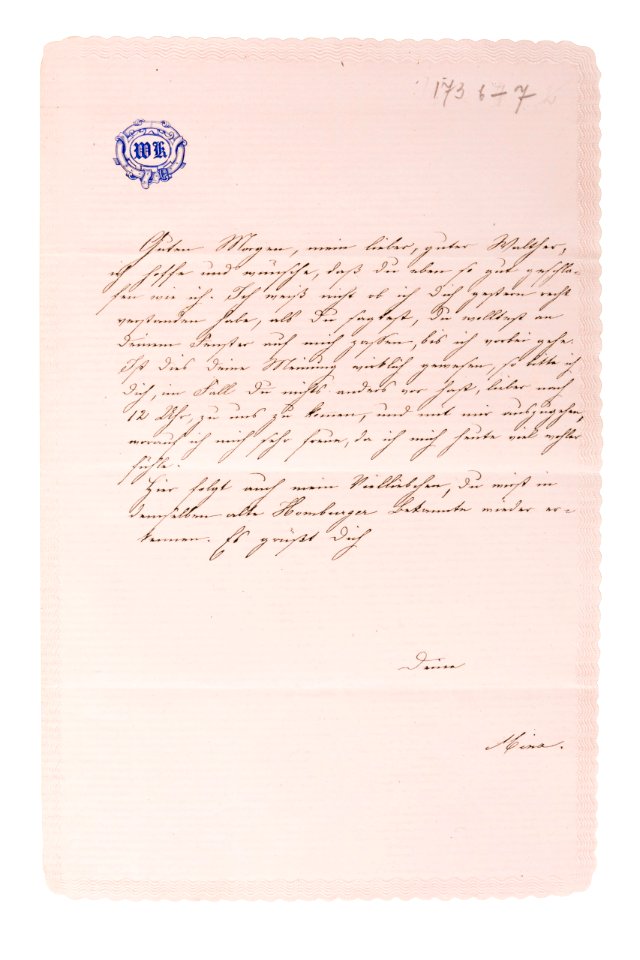 173 6-7
WK
Guten Morgen, mein lieber, guter Walther,
ich hoffe und wünsche, daß du eben so gut geschla-
fen wie ich. Ich weiß nicht ob ich Dich gestern recht
verstanden habe, als Du sagtest, Du wolltest an
Deinem Fenster auf mich passen, bis ich vorbei gehe.
Ist dies deine Meinung wirklich gewesen, so bitte ich
dich, im Fall Du nichts anders vor hast, lieber nach
12 Uhr, zu uns zu komen, und mit mir auszugehen,
worauf ich mich sehr freue, da ich mich heute viel wohler
fühle.
Hier folgt auch mein Vielliebchen, du wirst in
demselben alte Homburger Bekannte wieder er-
kennen. Es grüßt Dich
Deine
Mina.